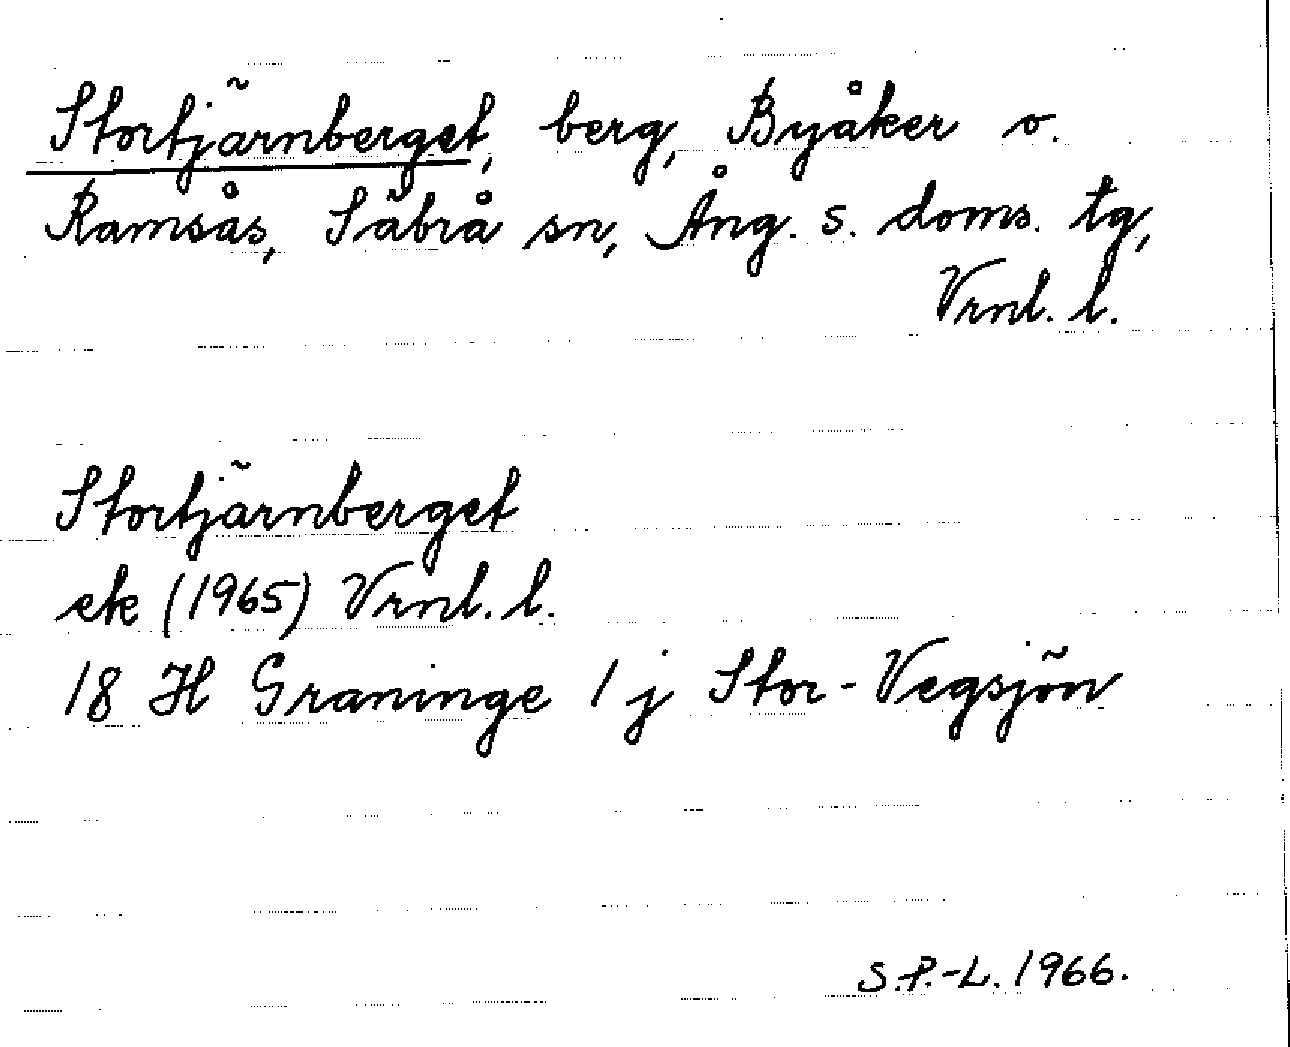 Stortjärnberget, berg, Byåker o.
Ramsås, Säbrå sn, Ång. s. doms. tg,
Vrnl. l.
Stortjärnberget
ek (1965) Vrnl. l.
18 H Graninge 1 j Stor-Vegsjön
S.P.-L. 1966.